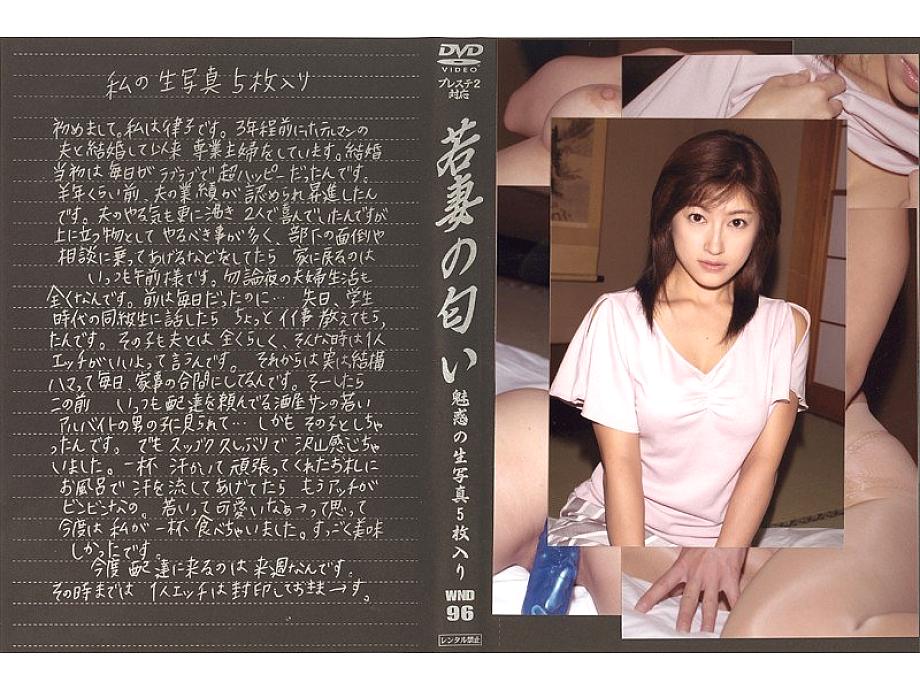 私の生写真5枚入り
初めまして。私は律子です。3年程前にホテルマンの
夫と結婚して以来 専業主婦をしています。結婚
当初は毎日がラブラブで超ハッピーだったんです。
半年くらい前、夫の業績が、認められ昇進したん
です。夫のやる気も更に湧き 2人で喜んでいたんですが
上に立つ物として やるべき事が多く、部下の面倒や
相談に乗ってあげるなどをしてたら 家に戻るのは
いつも午前様です。勿論夜の夫婦生活も
全くなんです。前は毎日だったのに… 先日、学生
時代の同級生に話したら ちょっとイイ事 教えてもらっ
たんです。その子も夫とは 全くらしく、そんな時は1人
エッチがいいよって言うんです。 それからは実は結構
ハマって毎日、家事の合間にしてるんです。そーしたら
この前 いつも配達を頼んでる酒屋サンの若い
アルバイトの男の子に見られて… しかも その子としちゃ
ったんです。でもスッゴク久しぶりで 沢山感じちゃ
いました。一杯 汗かいて 頑張ってくれたお礼に
お風呂で 汗を流してあげてたら もうアッチが
ビンビンなの。若いって可愛いなぁーって思って
今度は 私が一杯 食べちゃいました。すっごく美味
しかったです。
今度 配達に来るのは 来週なんです。
その時までは 1人エッチは封印しておきまーす。
DVD
VIDEO
プレステ2
対応
若妻の匂い
魅惑の生写真5枚入り
WND
96
レンタル禁止